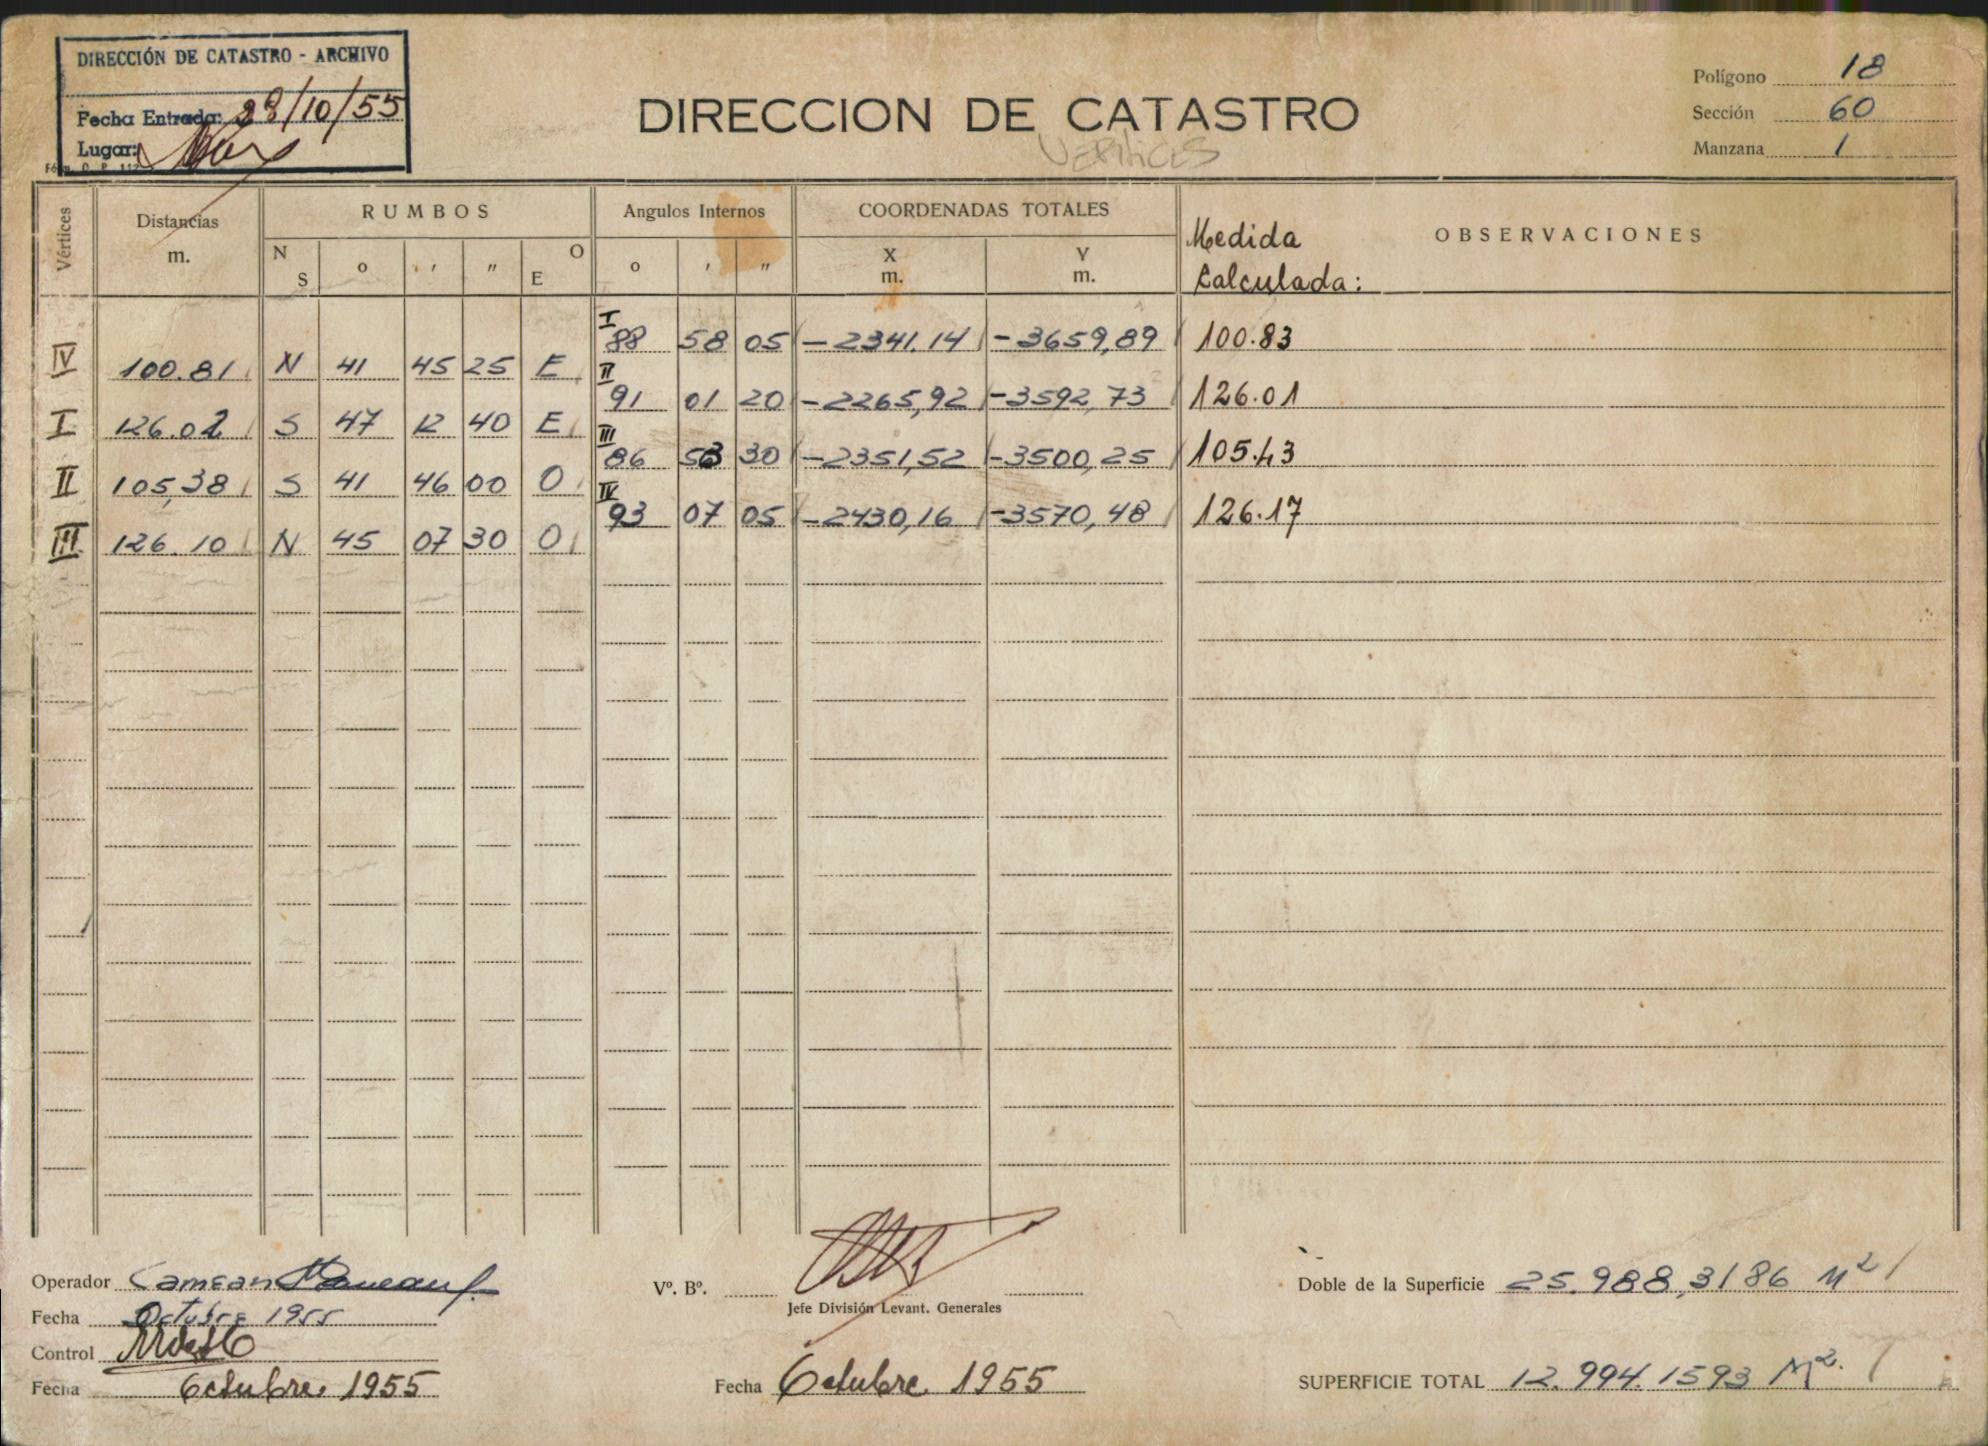 DIRECCIÓN DE CATASTRO - ARCHIVO
Fecha Entrada: 28/10/55
Lugar:
DIRECCION DE CATASTRO
VERTICES
Polígono 18
Sección 60
Manzana 1
Vértices
Distancias
m.
RUMBOS
N
S
o
'
"
O
E
Angulos Internos
o
'
"
COORDENADAS TOTALES
X
m.
Y
m.
Medida
Calculada:
OBSERVACIONES
I
88 58 05 -2341.14 -3659,89 100.83
IV 100.81 N 41 45 25 E
II
91 01 20 -2265,92 -3592,73 126.01
I 126.02 S 47 12 40 E
III
86 53 30 -2351,52 -3500,25 105.43
II 105,38 S 41 46 00 O
IV
93 07 05 -2430,16 -3570,48 126.17
III 126.10 N 45 07 30 O
Operador
Fecha Octubre 1955
Control
Fecha Octubre 1955
Vº. Bº.
Jefe División Levant. Generales
Fecha Octubre 1955
Doble de la Superficie 25.988,3186 M2
SUPERFICIE TOTAL 12.994.1593 M2.